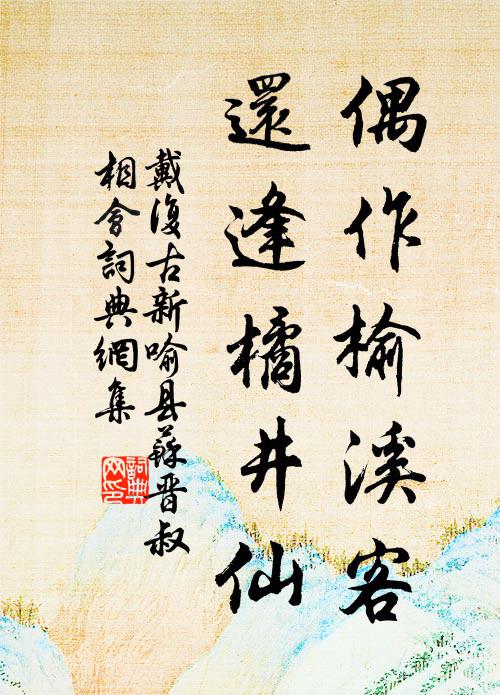 偶作榆溪客
還逢橘井仙
戴復古新喻县蘇晋叔
相會詞典網集
詞典
网印